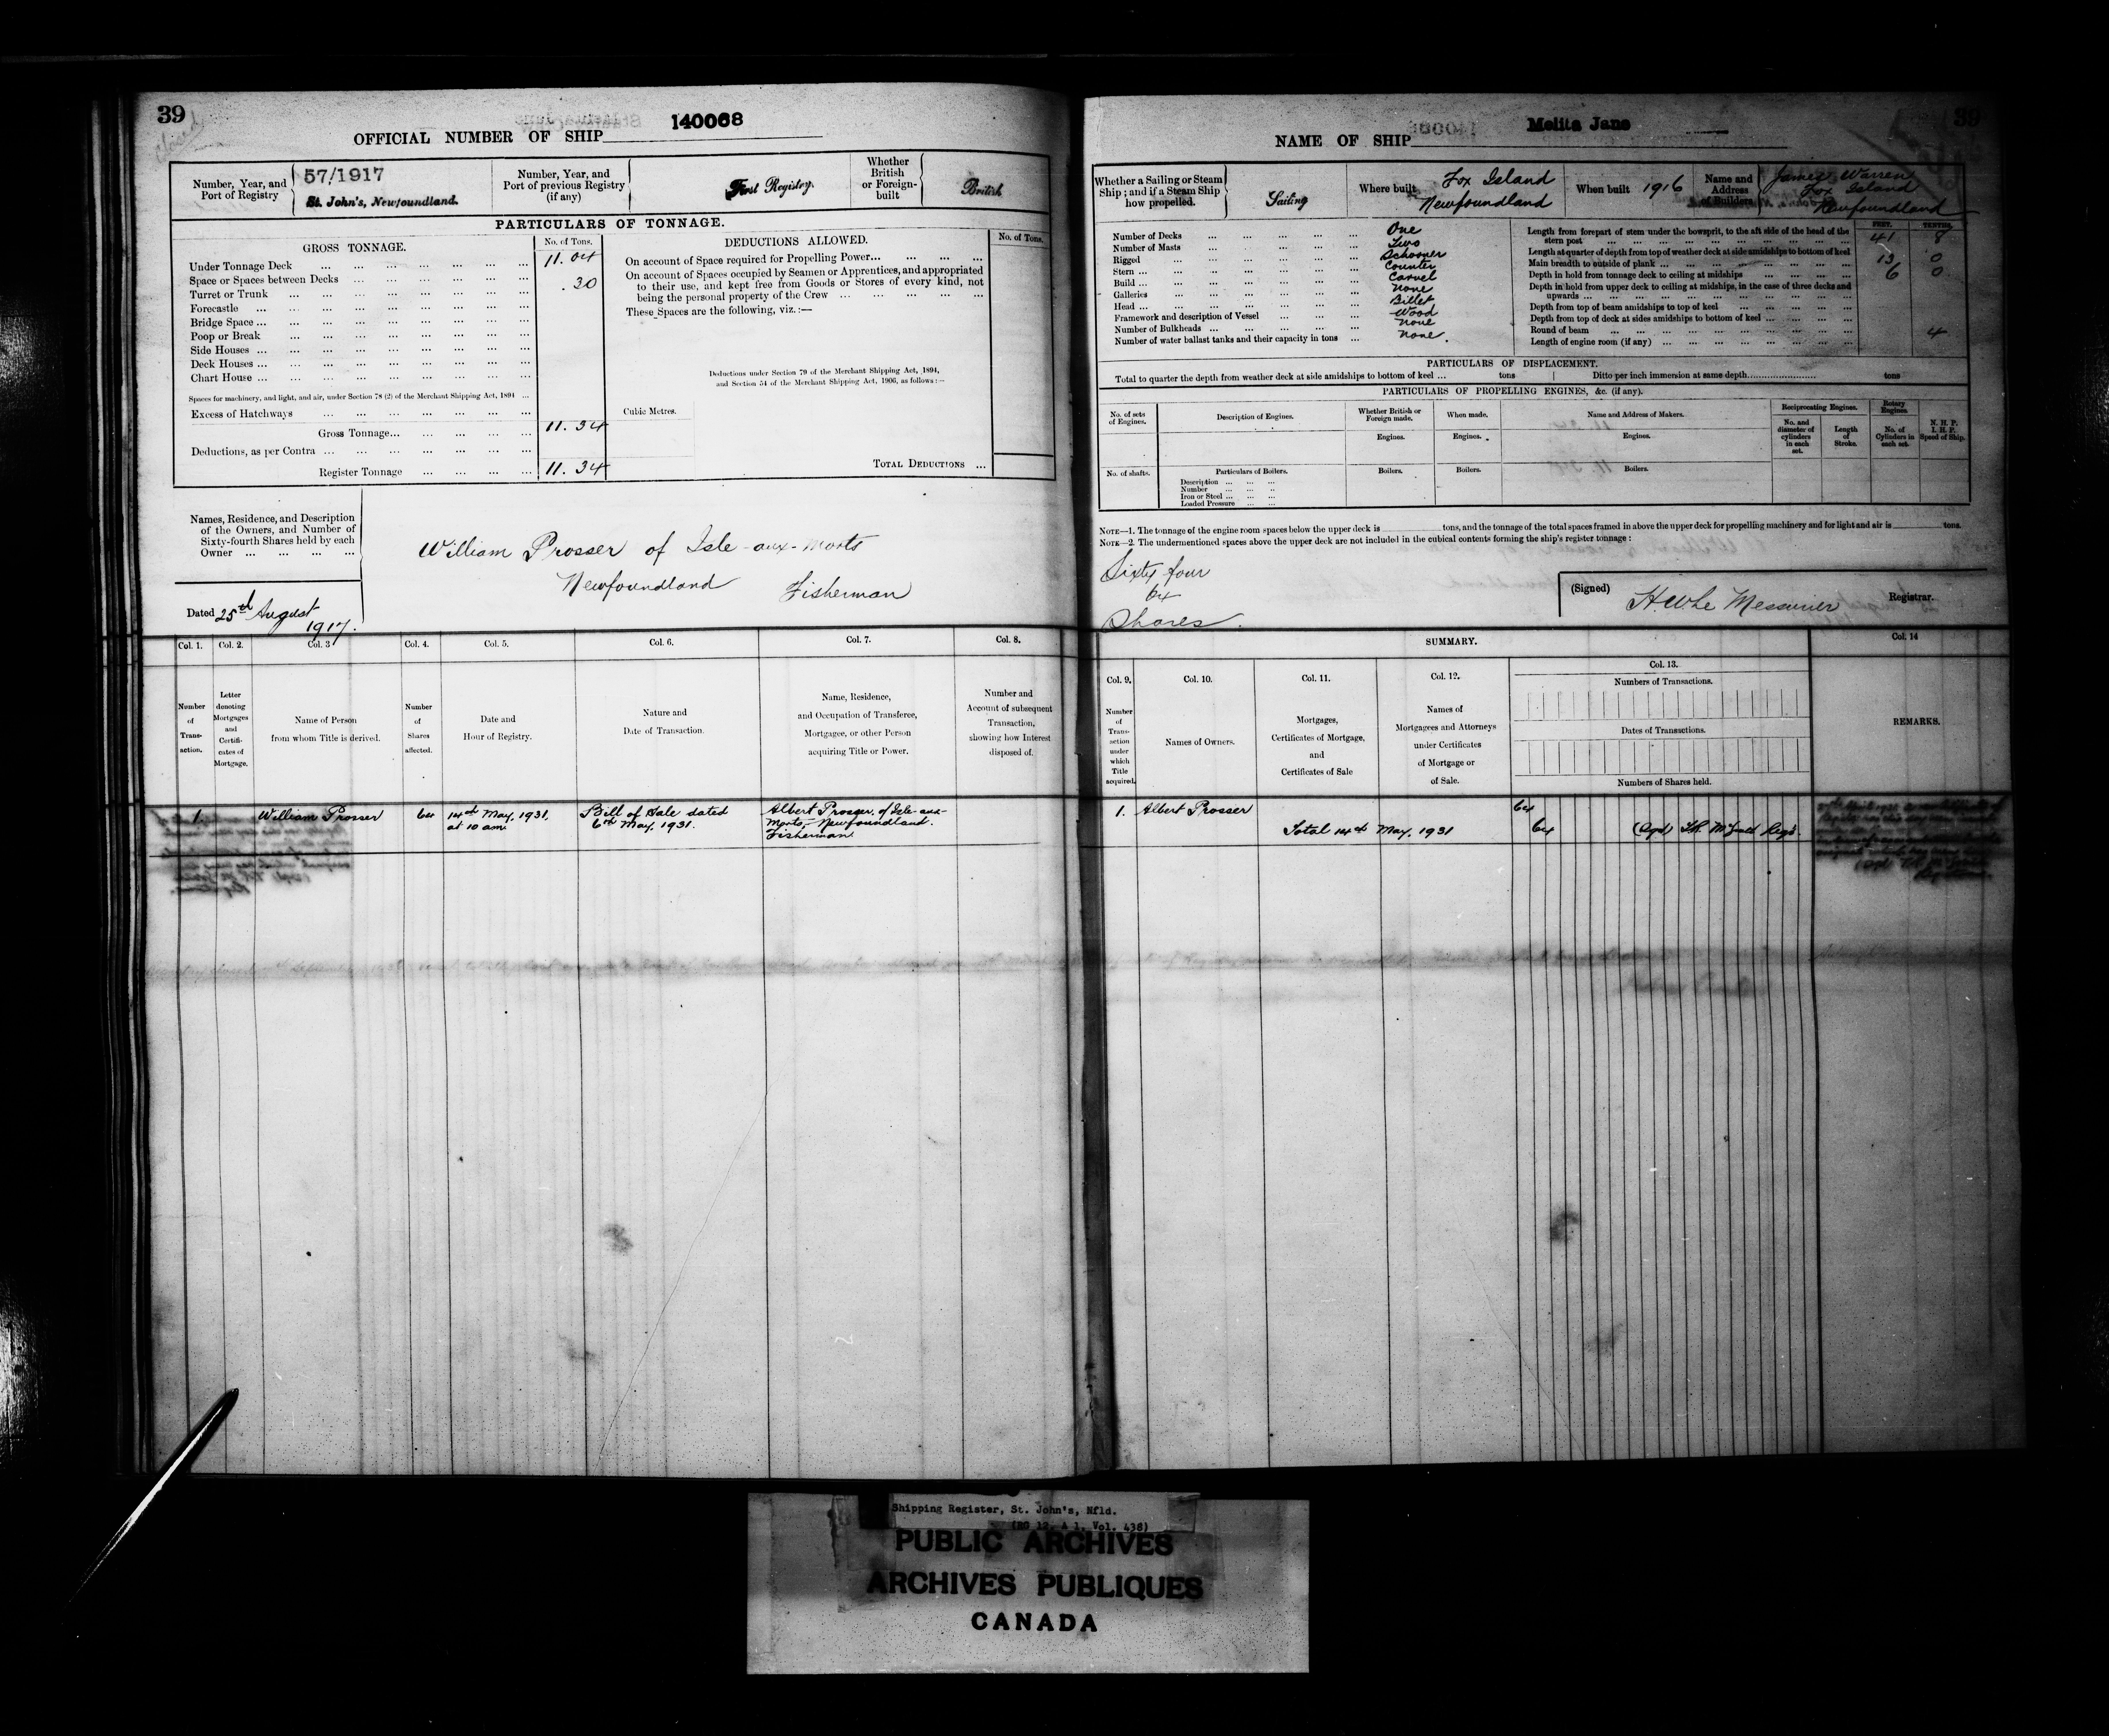 39
OFFICIAL NUMBER OF SHIP 140068
Number, Year, and Port of Registry
57/1917
St. John's, Newfoundland.
Number, Year, and Port of previous Registry (if any)
First Registry.
Whether British or Foreign-built
British
PARTICULARS OF TONNAGE.
GROSS TONNAGE. No. of Tons.
Under Tonnage Deck ... 11.04
Space or Spaces between Decks ... .30
Turret or Trunk ...
Forecastle ...
Bridge Space ...
Poop or Break ...
Side Houses ...
Deck Houses ...
Chart House ...
Spaces for machinery, and light, and air, under Section 78 (2) of the Merchant Shipping Act, 1894 ...
Excess of Hatchways ...
Gross Tonnage... 11.34
Deductions, as per Contra ...
Register Tonnage ... 11.34
DEDUCTIONS ALLOWED. No. of Tons.
On account of Space required for Propelling Power...
On account of Spaces occupied by Seamen or Apprentices, and appropriated
to their use, and kept free from Goods or Stores of every kind, not
being the personal property of the Crew ...
These Spaces are the following, viz.:—
Deductions under Section 79 of the Merchant Shipping Act, 1894,
and Section 54 of the Merchant Shipping Act, 1906, as follows:—
Cubic Metres.
TOTAL DEDUCTIONS ...
Names, Residence, and Description
of the Owners, and Number of
Sixty-fourth Shares held by each
Owner ...
William Prosser of Isle-aux-Morts
Newfoundland Fisherman
Dated 25th August
1917.
Col. 1. Col. 2. Col. 3 Col. 4. Col. 5. Col. 6. Col. 7. Col. 8.
Number of Transaction.
Letter denoting Mortgages and Certificates of Mortgage.
Name of Person from whom Title is derived.
Number of Shares affected.
Date and Hour of Registry.
Nature and Date of Transaction.
Name, Residence, and Occupation of Transferee, Mortgagee, or other Person acquiring Title or Power.
Number and Account of subsequent Transaction, showing how Interest disposed of.
1. William Prosser 64 14th May, 1931, at 10 am. Bill of Sale dated 6th May, 1931. Albert Prosser, of Isle-aux-Morts, Newfoundland. Fisherman
39
NAME OF SHIP Melita Jane
Whether a Sailing or Steam Ship; and if a Steam Ship how propelled.
Sailing
Where built
Fox Island
Newfoundland
When built 1916
Name and Address of Builders
James Warren
Fox Island
Newfoundland
Number of Decks ... One
Number of Masts ... Two
Rigged ... Schooner
Stern ... Counter
Build ... Carvel
Galleries ... None
Head ... Billet
Framework and description of Vessel ... Wood
Number of Bulkheads ... None
Number of water ballast tanks and their capacity in tons ... None.
FEET. TENTHS.
Length from forepart of stem under the bowsprit, to the aft side of the head of the
stern post ... 41 8
Length at quarter of depth from top of weather deck at side amidships to bottom of keel
Main breadth to outside of plank ... 13 0
Depth in hold from tonnage deck to ceiling at midships ... 6 0
Depth in hold from upper deck to ceiling at midships, in the case of three decks and
upwards ...
Depth from top of beam amidships to top of keel ...
Depth from top of deck at sides amidships to bottom of keel ...
Round of beam ... 4
Length of engine room (if any) ...
PARTICULARS OF DISPLACEMENT.
Total to quarter the depth from weather deck at side amidships to bottom of keel ... tons
Ditto per inch immersion at same depth... tons
PARTICULARS OF PROPELLING ENGINES, &c. (if any).
No. of sets of Engines. Description of Engines. Whether British or Foreign made. When made. Name and Address of Makers. Reciprocating Engines. Rotary Engines. N. H. P. I. H. P. Speed of Ship.
Engines. Engines. Engines. No. and diameter of cylinders in each set. Length of Stroke. No. of Cylinders in each set.
No. of shafts. Particulars of Boilers. Boilers. Boilers. Boilers.
Description ...
Number ...
Iron or Steel ...
Loaded Pressure ...
NOTE—1. The tonnage of the engine room spaces below the upper deck is tons, and the tonnage of the total spaces framed in above the upper deck for propelling machinery and for light and air is tons.
NOTE—2. The undermentioned spaces above the upper deck are not included in the cubical contents forming the ship's register tonnage:
Sixty four
64
Shares.
(Signed) H.W. Le Messurier Registrar.
SUMMARY.
Col. 9. Col. 10. Col. 11. Col. 12. Col. 13. Col. 14
Number of Transaction under which Title acquired.
Names of Owners.
Mortgages, Certificates of Mortgage, and Certificates of Sale
Names of Mortgagees and Attorneys under Certificates of Mortgage or of Sale.
Numbers of Transactions.
Dates of Transactions.
Numbers of Shares held.
REMARKS.
1. Albert Prosser 64
Total 14th May, 1931 64
Shipping Register, St. John's, Nfld.
(RG 12, A 1, Vol. 438)
PUBLIC ARCHIVES
ARCHIVES PUBLIQUES
CANADA